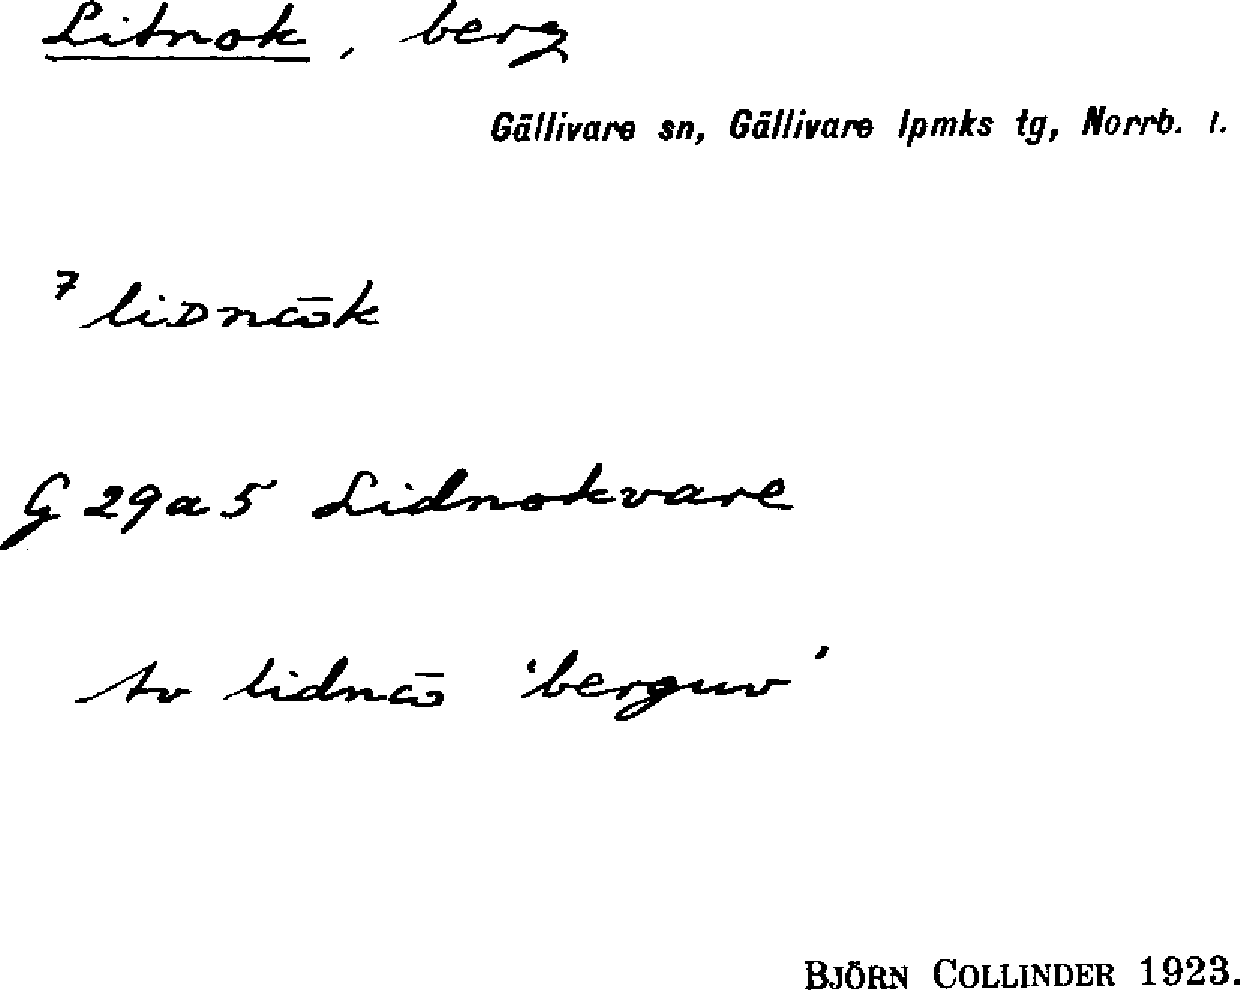 Litnok, berg
Gällivare sn, Gällivare lpmks tg, Norrb. l.
⁷ liᴅnω̄k
G 29a5 Lidnokvare
Av lidnω̄ 'berguv'
BJÖRN COLLINDER 1923.